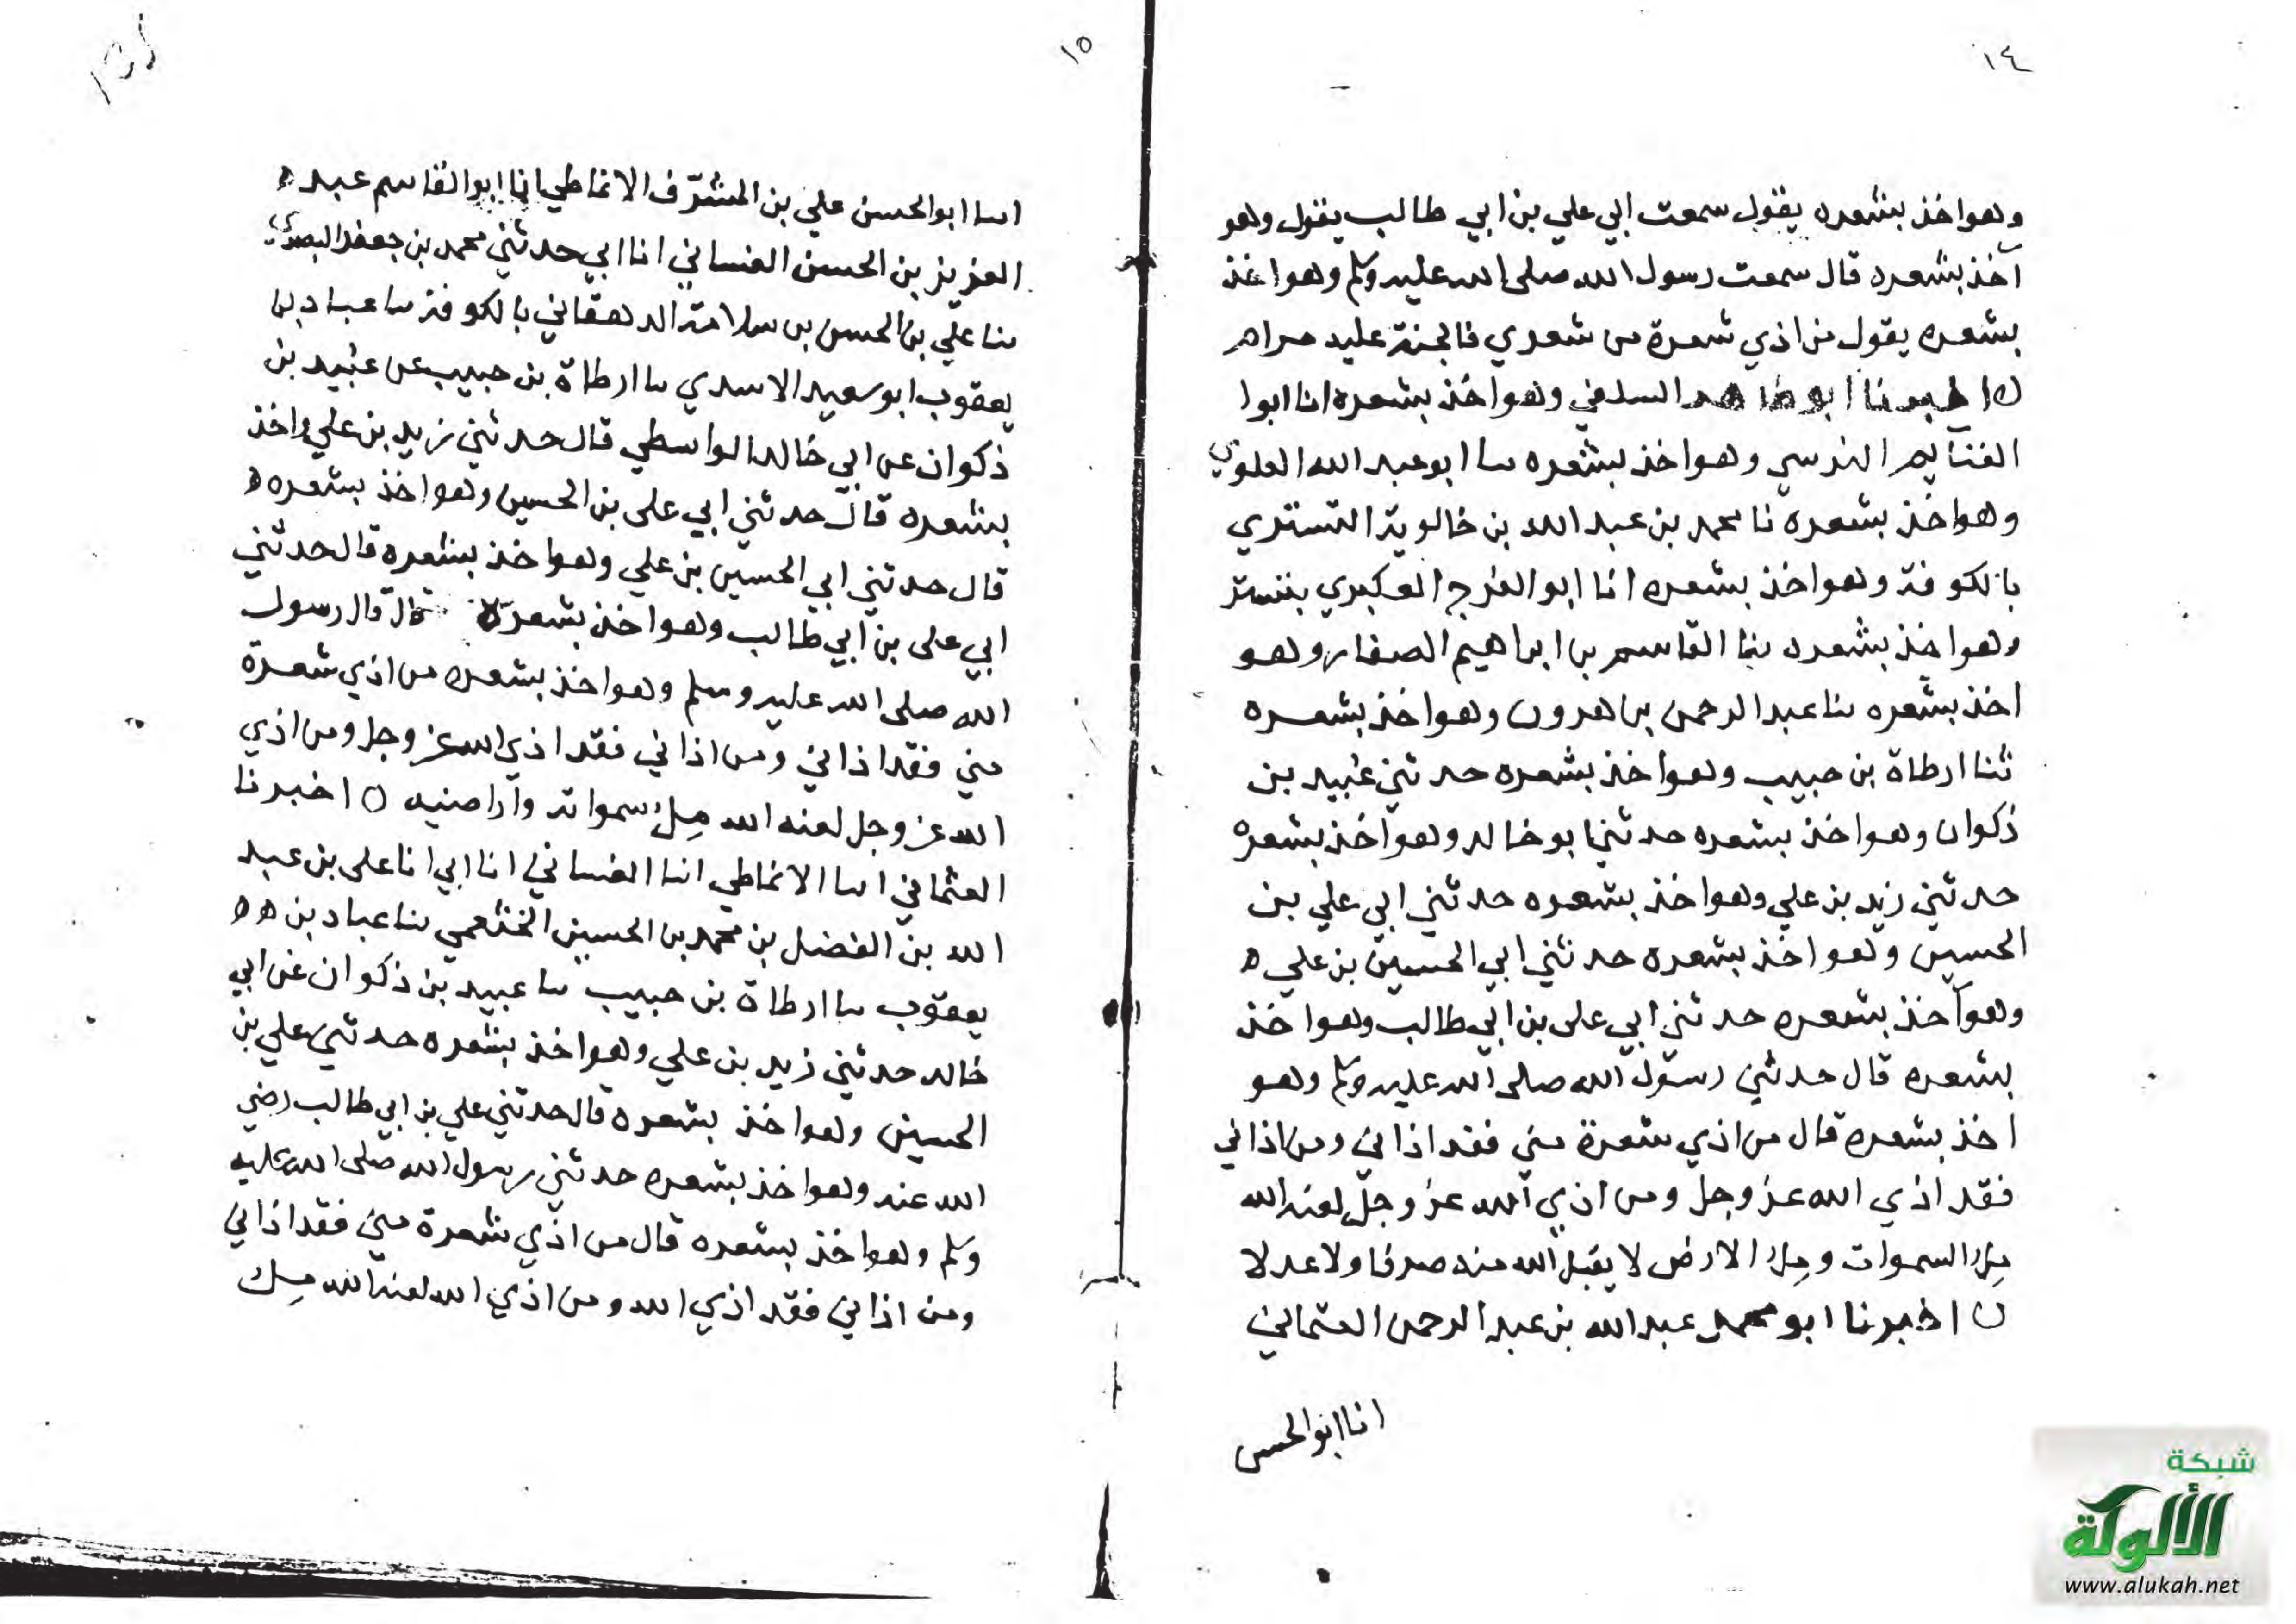 ١٤
وهو اخذ بشعره يقول سمعت ابي علي بن ابي طالب يقول وهو
آخذ بشعره قال سمعت رسول الله صلى الله عليه وسلم وهو اخذ
بشعره يقول من اذي شعرة من شعري فالجنة عليه حرام
ه اخبرنا ابو طاهر السلفي وهو اخذ بشعره انا ابوا
الغنايم النرسي وهو اخذ بشعره سا ابو عبد الله العلوي
وهو اخذ بشعره نا محمد بن عبد الله بن خالوية التستري
بالكوفة وهو اخذ بشعره انا ابو الفرج العكبري بتستر
وهو اخذ بشعره ثنا القاسم بن ابراهيم الصفار وهو
اخذ بشعره ثنا عبد الرحمن بن هرون وهو اخذ بشعره
ثنا ارطاة بن حبيب وهو اخذ بشعره حدثني عبيد بن
ذكوان وهو اخذ بشعره حدثني ابو خالد وهو اخذ بشعره
حدثني زيد بن علي وهو اخذ بشعره حدثني ابي علي بن
الحسين وهو اخذ بشعره حدثني ابي الحسين بن علي ه
وهو آخذ بشعره حدثني ابي على بن ابي طالب وهو اخذ
بشعره قال حدثني رسول الله صلى الله عليه وسلم وهو
اخذ بشعره قال من اذي شعرة مني فقد اذاني ومن اذاني
فقد اذي الله عز وجل ومن اذي الله عز وجل لعنه الله
ملا السموات وملا الارض لا يقبل الله منه صرفا ولا عدلا
ه اخبرنا ابو محمد عبد الله بن عبد الرحمن العثماني
انا ابو الحسن
١٥
انسا ابو الحسن علي بن المشرّف الانماطي انا ابو القاسم عبد ه
العزيز بن الحسن الغساني انا ابي حدثني محمد بن جعفر البصري
ثنا علي بن الحسن بن سلامة الدهقاني بالكوفة سا عباد بن
يعقوب ابو سعيد الاسدي سا ارطاة بن حبيب عن عبيد بن
ذكوان عن ابي خالد الواسطي قال حدثني زيد بن علي واخذ
بشعره قال حدثني ابي على بن الحسين وهو اخذ بشعره ه
قال حدثني ابي الحسين بن علي وهو اخذ بشعره قال حدثني
ابي على بن ابي طالب وهو اخذ بشعرة قال قال رسول
الله صلى الله عليه وسلم وهو اخذ بشعره من اذي شعرة
مني فقد اذاني ومن اذاني فقد اذي الله عز وجل ومن اذي
الله عز وجل لعنه الله مل سمواته وآراضيه ه اخبرنا
العثماني انسا الانماطي انسا الغساني انا ابي انا على بن عبد
الله بن الفضل بن محمد بن الحسين الخثعمي ثنا عباد بن ه ه
يعقوب سا ارطاة بن حبيب سا عبيد بن ذكوان عن ابي
خالد حدثني زيد بن علي وهو اخذ بشعره حدثني علي بن
الحسين وهو اخذ بشعره قال حدثني علي بن ابي طالب رضي
الله عنه وهو اخذ بشعره حدثني رسول الله صلى الله عليه
وسلم وهو اخذ بشعره قال من اذي شعرة مني فقد اذاني
ومن اذاني فقد اذي الله ومن اذي الله لعنه الله مل
شبكة
الألوكة
www.alukah.net